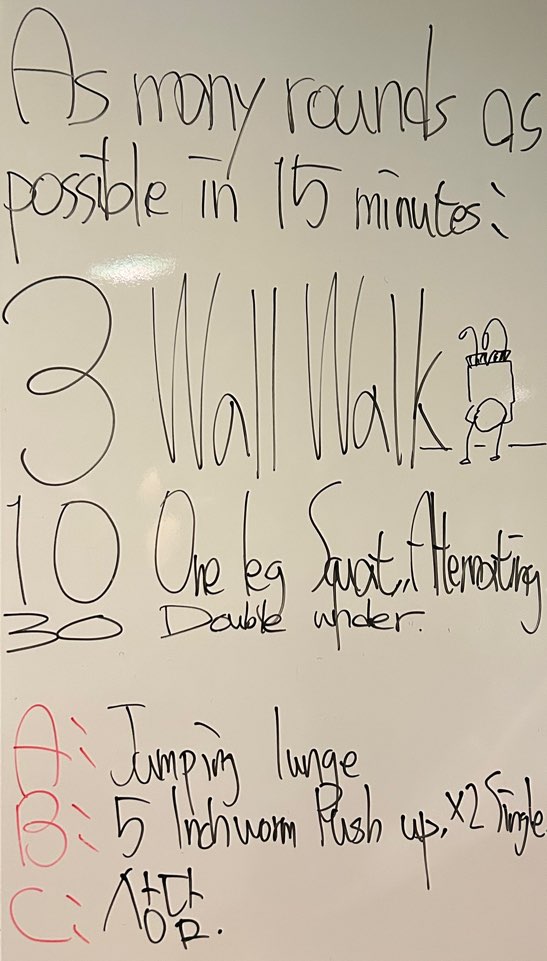 As many rounds as
possible in 15 minutes:
3 Wall Walk
10 One leg Squat, Alternating
30 Double under.
A: Jumping lunge
B: 5 Inchworm Push up, x2 Single
C: 상담.